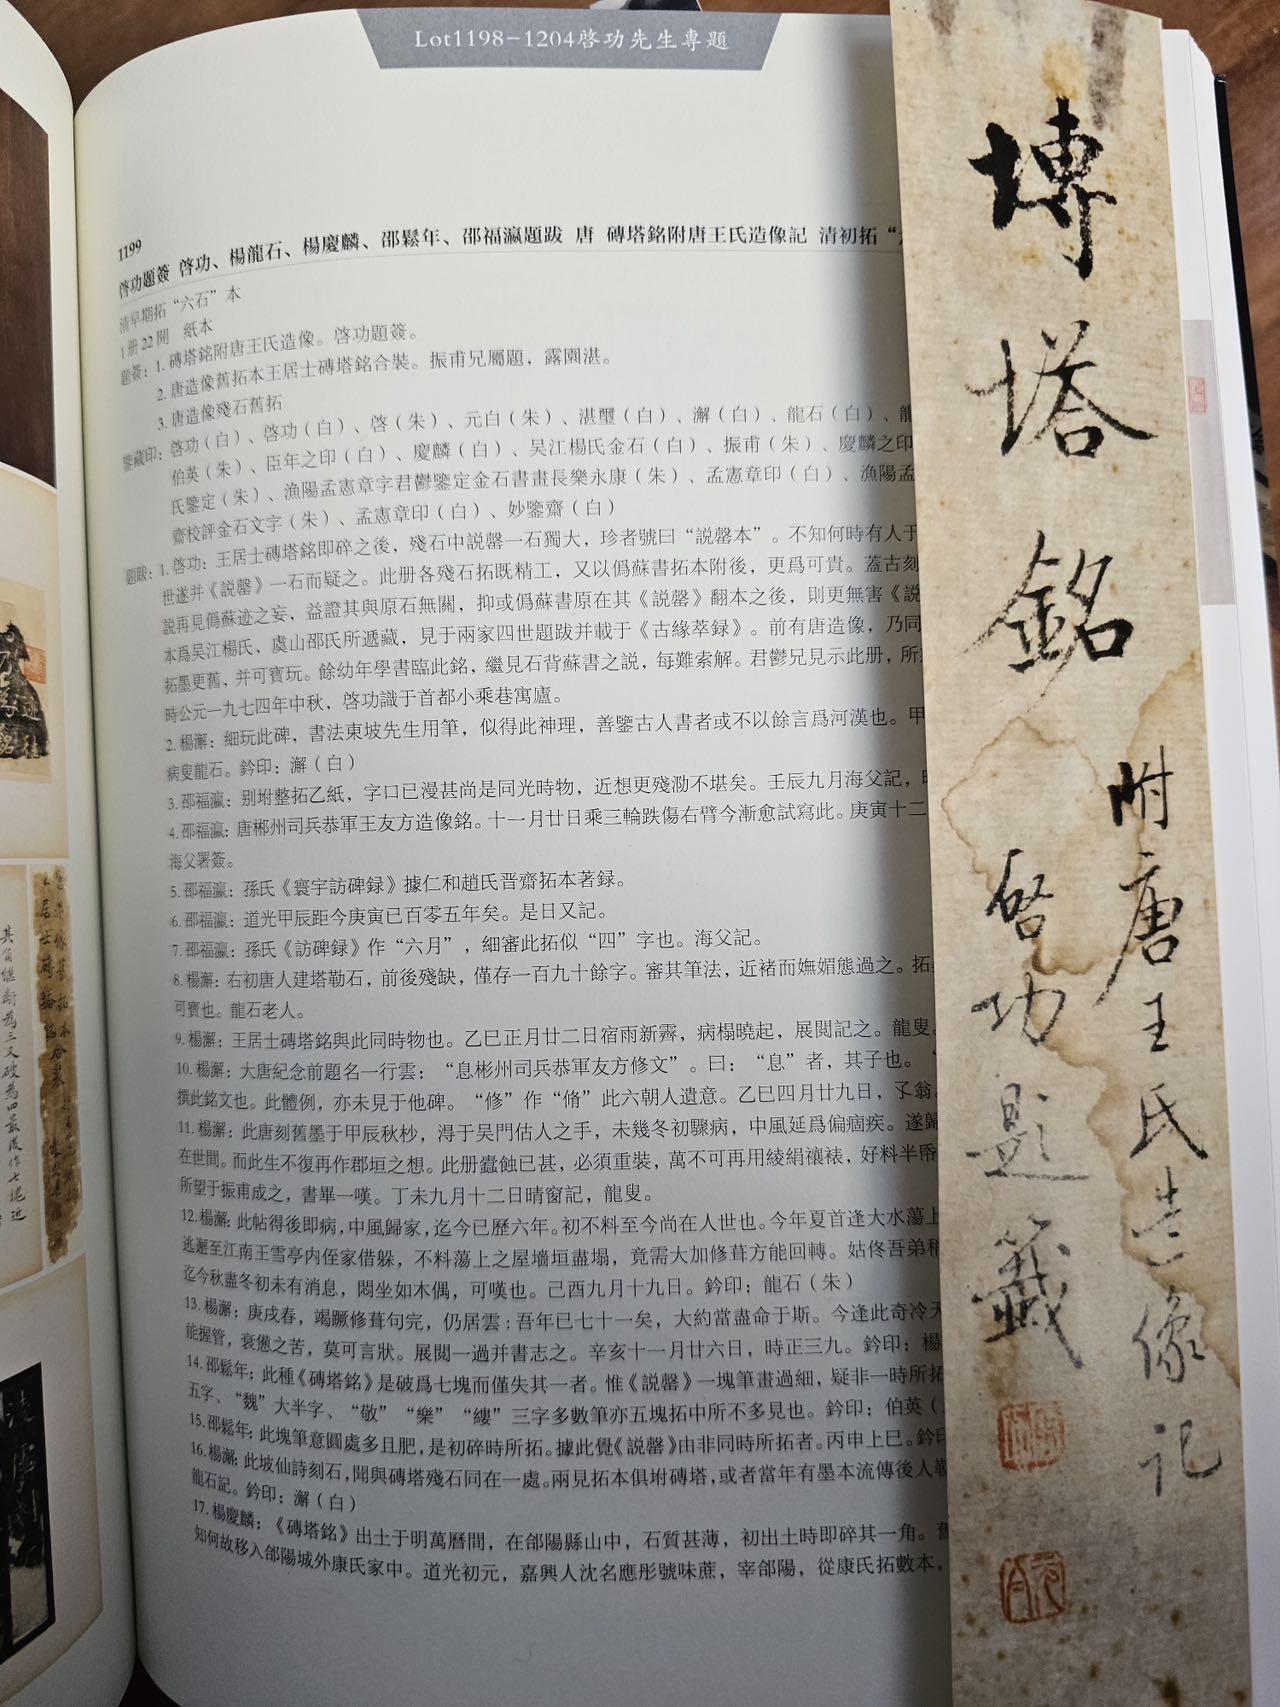 Lot1198-1204啓功先生專題
1199
啓功題簽 啓功、楊龍石、楊慶麟、邵鬆年、邵福瀛題跋 唐 磚塔銘附唐王氏造像記 清初拓“
清早期拓“六石”本
1册22開 紙本
題簽：1. 磚塔銘附唐王氏造像。啓功題簽。
2. 唐造像舊拓本王居士磚塔銘合裝。振甫兄屬題，露園湛。
3. 唐造像殘石舊拓
鑒藏印：啓功（白）、啓功（白）、啓（朱）、元白（朱）、湛璽（白）、澥（白）、龍石（白）、龍
伯英（朱）、臣年之印（白）、慶麟（白）、吴江楊氏金石（白）、振甫（朱）、慶麟之印
氏鑒定（朱）、漁陽孟憲章字君鬱鑒定金石書畫長樂永康（朱）、孟憲章印（白）、漁陽孟
齋校評金石文字（朱）、孟憲章印（白）、妙鑒齋（白）
題跋：1. 啓功：王居士磚塔銘即碎之後，殘石中説罄一石獨大，珍者號曰“説罄本”。不知何時有人于
世遂并《説罄》一石而疑之。此册各殘石拓既精工，又以僞蘇書拓本附後，更爲可貴。蓋古刻
説再見僞蘇迹之妄，益證其與原石無關，抑或僞蘇書原在其《説罄》翻本之後，則更無害《説
本爲吴江楊氏、虞山邵氏所遞藏，見于兩家四世題跋并載于《古緣萃録》。前有唐造像，乃同
拓墨更舊，并可寶玩。餘幼年學書臨此銘，繼見石背蘇書之説，每難索解。君鬱兄見示此册，所
時公元一九七四年中秋，啓功識于首都小乘巷寓廬。
2. 楊澥：細玩此碑，書法東坡先生用筆，似得此神理，善鑒古人書者或不以餘言爲河漢也。甲
病叟龍石。鈐印：澥（白）
3. 邵福瀛：别坿整拓乙紙，字口已漫甚尚是同光時物，近想更殘泐不堪矣。壬辰九月海父記，
4. 邵福瀛：唐郴州司兵恭軍王友方造像銘。十一月廿日乘三輪跌傷右臂今漸愈試寫此。庚寅十二
海父署簽。
5. 邵福瀛：孫氏《寰宇訪碑録》據仁和趙氏晋齋拓本著録。
6. 邵福瀛：道光甲辰距今庚寅已百零五年矣。是日又記。
7. 邵福瀛：孫氏《訪碑録》作“六月”，細審此拓似“四”字也。海父記。
8. 楊澥：右初唐人建塔勒石，前後殘缺，僅存一百九十餘字。審其筆法，近褚而嫵媚態過之。拓
可寶也。龍石老人。
9. 楊澥：王居士磚塔銘與此同時物也。乙巳正月廿二日宿雨新霽，病榻曉起，展閲記之。龍叟。
10. 楊澥：大唐紀念前題名一行雲：“息彬州司兵恭軍友方修文”。曰：“息”者，其子也。“
撰此銘文也。此體例，亦未見于他碑。“修”作“脩”此六朝人遺意。乙巳四月廿九日，孓翁。
11. 楊澥：此唐刻舊墨于甲辰秋杪，淂于吴門估人之手，未幾冬初驟病，中風延爲偏痼疾。遂歸
在世間。而此生不復再作郡垣之想。此册蠹蝕已甚，必須重裝，萬不可再用綾絹禳裱，好料半帋
所望于振甫成之，書畢一嘆。丁未九月十二日晴窗記，龍叟。
12. 楊澥：此帖得後即病，中風歸家，迄今已歷六年。初不料至今尚在人世也。今年夏首逢大水蕩上
逃避至江南王雪亭内侄家借躲，不料蕩上之屋墻垣盡塌，竟需大加修葺方能回轉。姑佟吾弟稍
迄今秋盡冬初未有消息，悶坐如木偶，可嘆也。己酉九月十九日。鈐印：龍石（朱）
13. 楊澥：庚戌春，竭蹶修葺句完，仍居雲：吾年已七十一矣，大約當盡命于斯。今逢此奇冷天
能握管，衰憊之苦，莫可言狀。展閲一過并書志之。辛亥十一月廿六日，時正三九。鈐印：楊
14. 邵鬆年：此種《磚塔銘》是破爲七塊而僅失其一者。惟《説罄》一塊筆畫過細，疑非一時所拓
五字、“魏”大半字、“敬”“樂”“縷”三字多數筆亦五塊拓中所不多見也。鈐印：伯英（
15. 邵鬆年：此塊筆意圓處多且肥，是初碎時所拓。據此覺《説罄》由非同時所拓者。丙申上巳。鈐印
16. 楊澥：此坡仙詩刻石，聞與磚塔殘石同在一處。兩見拓本俱坿磚塔，或者當年有墨本流傳後人勒
龍石記。鈐印：澥（白）
17. 楊慶麟：《磚塔銘》出土于明萬曆間，在郃陽縣山中，石質甚薄，初出土時即碎其一角。舊
知何故移入郃陽城外康氏家中。道光初元，嘉興人沈名應彤號味蔗，宰郃陽，從康氏拓數本，
塼塔銘
附唐王氏造像記
啓功題籤
其角繼斷為三又破為四最後作七塊近